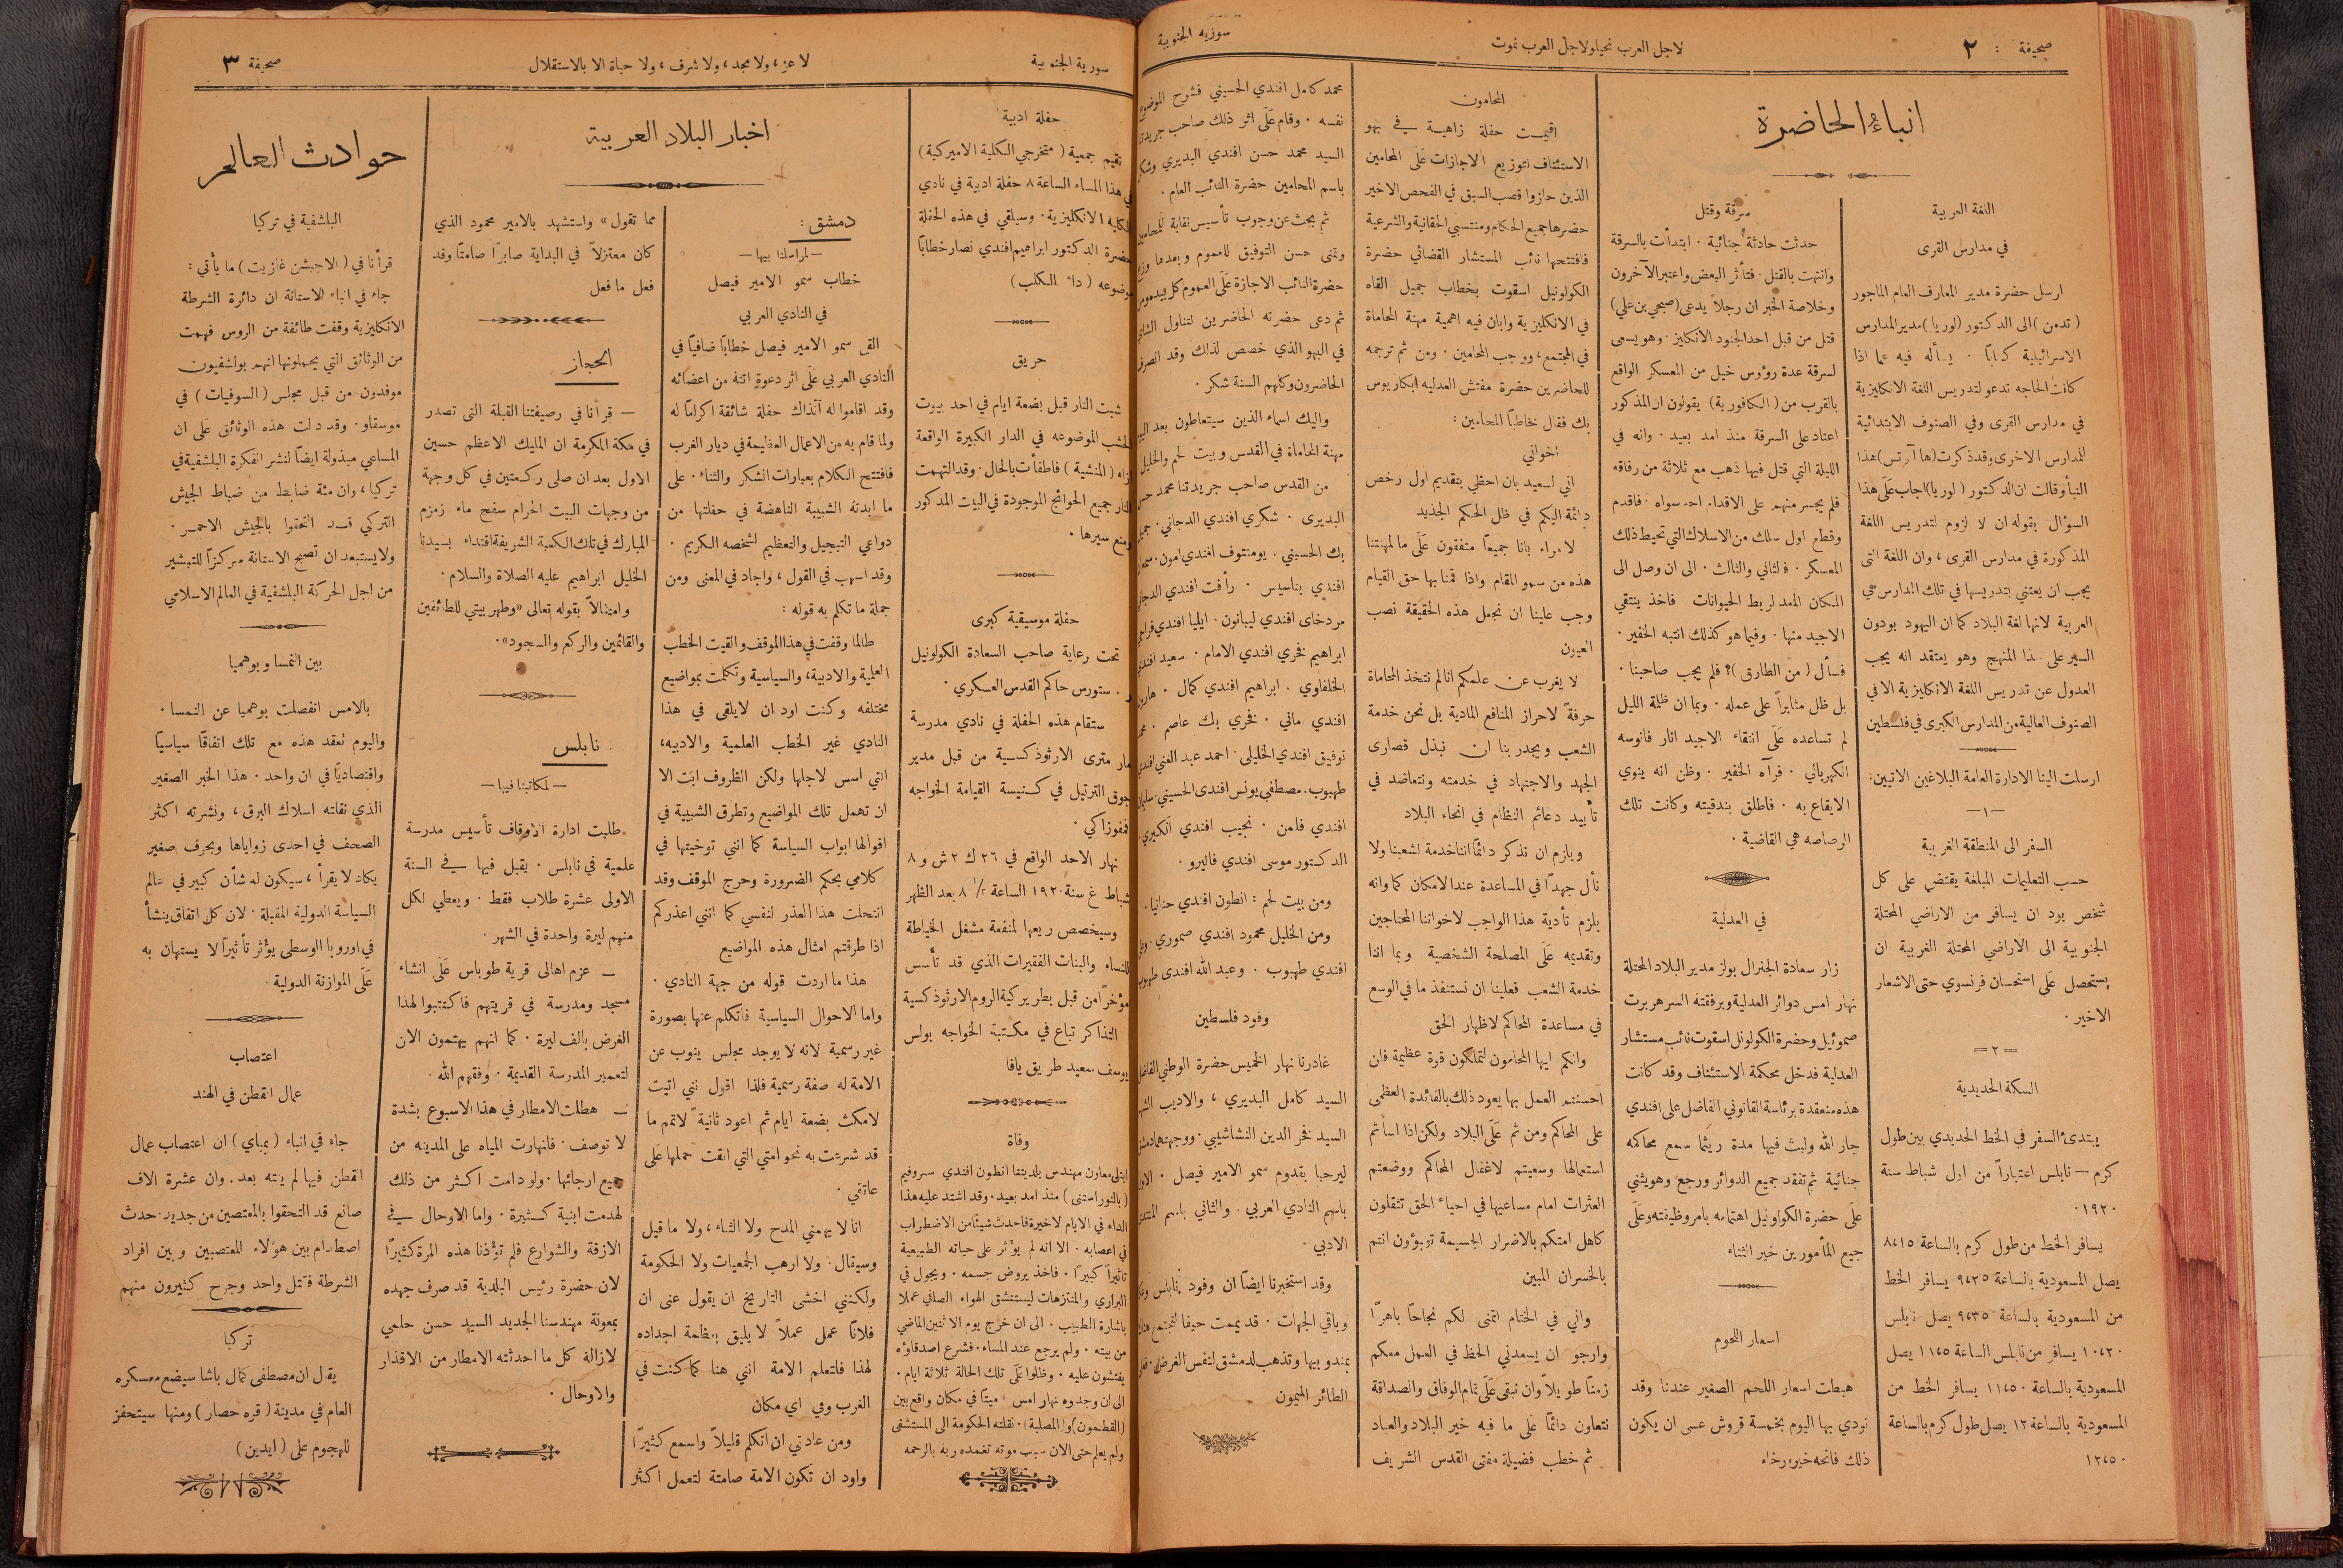 صحيفة : ٢
لاجل العرب نحيا ولاجل العرب نموت
سورية الجنوبية
انباء الحاضرة
اللغة العربية
في مدارس القرى
ارسل حضرة مدير المعارف العام الماجور
(تدمن) الى الدكتور (لوريا) مدير المدارس
الاسرائيلية كتابًا . يسأله فيه عما اذا
كانت الحاجه تدعو لتدريس اللغة الانكليزية
في مدارس القرى وفي الصفوف الابتدائية
للمدارس الاخرى وقد ذكرت (ها آرتس) هذا
النبأ وقالت ان الدكتور (لوريا) اجاب عَلَى هذا
السؤال بقوله ان لا لزوم لتدريس اللغة
المذكورة في مدارس القرى ، وان اللغة التى
يجب ان يعتني بتدريسها في تلك المدارس هي
العربية لانها لغة البلاد كما ان اليهود يودون
السير على هذا المنهج وهو يعتقد انه يجب
العدول عن تدريس اللغة الانكليزية الا في
الصفوف العالية من المدارس الكبرى في فلسطين
ارسلت الينا الادارة العامة البلاغين الاتيين:
— ١ —
السفر الى المنطقة الغربية
حسب التعليمات المبلغة يقتضي على كل
شخص يود ان يسافر من الاراضي المحتلة
الجنوبية الى الاراضي المحتلة الغربية ان
يستحصل عَلَى استحسان فرنسوي حتى الاشعار
الاخير .
= ٢ =
السكة الحديدية
يبتدئ السفر في الخط الحديدي بين طول
كرم — نابلس اعتباراً من اول شباط سنة
١٩٢٠ .
يسافر الخط من طول كرم بالساعة ٨،١٥
يصل المسعودية بالساعة ٩،٢٥ يسافر الخط
من المسعودية بالساعة ٩،٣٥ يصل نابلس
١٠،٢٠ يسافر من نابلس الساعة ١١،٥ يصل
المسعودية بالساعة ١١،٥٠ يسافر الخط من
المسعودية بالساعة ١٢ يصل طول كرم بالساعة
١٢،٥٠
سرقة وقتل
حدثت حادثة جنائية . ابتدأت بالسرقة
وانتهت بالقتل . فتأثر البعض واعتبر الآخرون
وخلاصة الخبر ان رجلاً يدعى (صبحي بن علي)
قتل من قبل احد الجنود الانكليز . وهو يسعى
لسرقة عدة رؤوس خيل من المعسكر الواقع
بالقرب من (الكافورية) يقولون ان المذكور
اعتاد على السرقة منذ امد بعيد . وانه في
الليلة التي قتل فيها ذهب مع ثلاثة من رفاقه
فلم يجسر منهم على الاقدام احد سواه . فاقدم
وقطع اول سلك من الاسلاك التي تحيط ذلك
المعسكر . فالثاني والثالث . الى ان وصل الى
المكان المعد لربط الحيوانات فاخذ ينتقي
الاجيد منها . وفيما هو كذلك انتبه الخفير .
فسأل (من الطارق)؟ فلم يجب صاحبنا .
بل ظل مثابراً على عمله . وبما ان ظلمة الليل
لم تساعده عَلَى انتقاء الاجيد انار فانوسه
الكهربائي . فرآه الخفير . وظن انه ينوي
الايقاع به . فاطلق بندقيته وكانت تلك
الرصاصه هي القاضية .
في العدلية
زار سعادة الجنرال بولز مدير البلاد المحتلة
نهار امس دوائر العدلية وبرفقته السر هربرت
صموئيل وحضرة الكولونل اسقوت نائب مستشار
العدلية فدخل محكمة الاستئناف وقد كانت
هذه منعقدة برئاسة القانوني الفاضل علي افندي
جار الله ولبث فيها مدة ريثما سمع محاكمه
جنائية ثم تفقد جميع الدوائر ورجع وهو يثني
عَلَى حضرة الكولونيل اهتمامه بامر وظيفته وعَلَى
جميع المأمورين خير الثناء
اسعار اللحوم
هبطت اسعار اللحم الصغير عندنا وقد
نودي بها اليوم بخمسة قروش عسى ان يكون
ذلك فاتحه خير ورخاء
المحامون
اقيمت حفلة زاهية في بهو
الاستئناف لتوزيع الاجازات عَلَى المحامين
الذين حازوا قصب السبق في الفحص الاخير
حضرها جميع الحكام ومنتسبي الحقانية والشرعية
فافتتحها نائب المستشار القضائي حضرة
الكولونيل اسقوت بخطاب جميل القاه
في الانكليزية وابان فيه اهمية مهنة المحاماة
في المجتمع ، ووجب المحامين . ومن ثم ترجمه
للحاضرين حضرة مفتش العدليه ابكاريوس
بك فقال مخاطبًا المحامين :
اخواني
اني لسعيد بان احظى بتقديم اول رخص
دائمة اليكم في ظل الحكم الجديد
لا مراء باننا جميعاً متفقون عَلَى ما لمهنتنا
هذه من سمو المقام واذا قمنا بها حق القيام
وجب علينا ان نجعل هذه الحقيقة نصب
العيون
لا يغرب عن علمكم اننا لم نتخذ المحاماة
حرفةً لاحراز المنافع المادية بل نحن خدمة
الشعب ويجدر بنا ان نبذل قصارى
الجهد والاجتهاد في خدمته ونتعاضد في
تأييد دعائم النظام في انحاء البلاد
ويلزم ان نذكر دائمًا اننا خدمة لشعبنا ولا
نأل جهدًا في المساعدة عند الامكان كما وانه
يلزم تأدية هذا الواجب لاخواننا المحتاجين
وتقديمه عَلَى المصلحة الشخصية وبما اننا
خدمة الشعب فعلينا ان نستنفذ ما في الوسع
في مساعدة المحاكم لاظهار الحق
وانكم ايها المحامون لتملكون قوة عظيمة فان
احسنتم العمل بها يعود ذلك بالفائدة العظمى
على المحاكم ومن ثم عَلَى البلاد ولكن اذا اسأتم
استعمالها وسعيتم لاغفال المحاكم ووضعتم
العثرات امام مساعيها في احياء الحق تثقلون
كاهل امتكم بالاضرار الجسيمة وتبوؤون انتم
بالخسران المبين
واني في الختام اتمنى لكم نجاحًا باهرًا
وارجو ان يسعدني الحظ في العمل معكم
زمنًا طويلاً وان نبقى عَلَى تمام الوفاق والصداقة
نتعاون دائمًا عَلَى ما فيه خير البلاد والعباد
ثم خطب فضيلة مفتى القدس الشريف
محمد كامل افندي الحسيني فشرح الموضوع
نفسه . وقام عَلَى اثر ذلك صاحب جريدتنا
السيد محمد حسن افندي البديري وشكر
باسم المحامين حضرة النائب العام .
ثم بحث عن وجوب تأسيس نقابة للمحامين
وتمنى حسن التوفيق للعموم وبعدها وزع
حضرة النائب الاجازة عَلَى العموم كل بيده ومن
ثم دعى حضرته الحاضرين لتناول الشاي
في البهو الذي خصص لذلك وقد انصرف
الحاضرون وكلهم السنة شكر .
واليك اسماء الذين سيتعاطون بعد اليوم
مهنة المحاماة في القدس وبيت لحم والخليل
من القدس صاحب جريدتنا محمد حسن
البديرى . شكري افندي الدجاني .
بك الحسيني . يومنتوف افندي امون .
افندي بناسيس . رأفت افندي الدجاني
مردخاى افندي ليبانون . ايليا افندي
ابراهيم فخري افندي الامام . سعيد افندي
الخلفاوي . ابراهيم افندي كمال .
افندي ماني . فخري بك عاصم .
توفيق افندي الخليلى . احمد عبد الغني افندي
طهبوب . مصطفى يونس افندى الحسيني
افندي فلمن . نجيب افندي الكبيري .
الدكتور موسى افندي فاليرو .
ومن بيت لحم : انطون افندي حنانيا .
ومن الخليل محمود افندي صموري .
افندي طهبوب . وعبد الله افندى طهبوب
وفود فلسطين
غادرنا نهار الخميس حضرة الوطني الفاضل
السيد كامل البديري ، والاديب
السيد فخر الدين النشاشيبي . ووجهتهما دمشق
ليرحبا بقدوم سمو الامير فيصل . الاول
باسم النادي العربي . والثاني باسم المنتدى
الادبي .
وقد استخبرنا ايضًا ان وفود نابلس
وباقي الجهات . قد يممت حيفا لتجتمع هناك
بمندوبيها وتذهب لدمشق لنفس الغرض .
الطائر الميمون
سورية الجنوبية
لا عز ، ولا مجد ، ولا شرف ، ولا حياة الا بالاستقلال
صحيفة ٣
حفلة ادبية
تقيم جمعية (متخرجي الكلية الاميركية)
في هذا المساء الساعة ٨ حفلة ادبية في نادي
الكلية الانكليزية . وسيلقي في هذه الحفلة
حضرة الدكتور ابراهيم افندي نصار خطابًا
موضوعه (داء الكلب)
حريق
شبت النار قبل بضعة ايام في احد بيوت
الخشب الموضوعه في الدار الكبيرة الواقعة
ازاء (المنشية) فاطفأت بالحال . وقد التهمت
النار جميع الحوائج الموجودة في البيت المذكور
ومنع سيرها .
حفلة موسيقية كبرى
تحت رعاية صاحب السعادة الكولونيل
ر . ستورس حاكم القدس العسكري .
ستقام هذه الحفلة في نادي مدرسة
مار متري الارثوذكسية من قبل مدير
جوق الترتيل في كنيسة القيامة الخواجه
نمفوزاكي .
نهار الاحد الواقع في ٢٦ ك ٢ ش و ٨
شباط غ سنة ١٩٢٠ الساعة ½ ٨ بعد الظهر
وسيخصص ريعها لمنفعة مشغل الخياطة
للنساء والبنات الفقيرات الذي قد تأسس
مؤخراً من قبل بطريركية الروم الارثوذكسية
التذاكر تباع في مكتبة الخواجه بولس
يوسف سعيد طريق يافا
وفاة
ابتلى معاون مهندس بلديتنا انطون افندي سروفيم
(بالنوراستنى) منذ امد بعيد . وقد اشتد عليه هذا
الداء في الايام الاخيرة فاحدث شيئًا من الاضطراب
في اعصابه . الا انه لم يؤثر على حياته الطبيعية
تأثيراً كبيرًا . فاخذ يروض جسمه . ويجول في
البراري والمنتزهات ليستنشق الهواء الصافي عملا
باشارة الطبيب . الى ان خرج يوم الاثنين الماضي
من بيته . ولم يرجع عند المساء . فشرع اصدقاؤه
يفتشون عليه . وظلوا عَلَى تلك الحالة ثلاثة ايام .
الى ان وجدوه نهار امس ميتًا في مكان واقع بين
(القطمون) و(المصلبة) . نقلته الحكومة الى المستشفى
ولم يعلم حتى الان سبب موته تغمده ربه بالرحمه
اخبار البلاد العربية
دمشق :
— لمراسلنا بها —
خطاب سمو الامير فيصل
في النادي العربي
القى سمو الامير فيصل خطابًا ضافيًا في
النادي العربي عَلَى اثر دعوة اتته من اعضائه
وقد اقاموا له آنذاك حفلة شائقة اكرامًا له
ولما قام به من الاعمال العظيمة في ديار الغرب
فافتتح الكلام بعبارات الشكر والثناء . على
ما ابدته الشبيبة الناهضة في حفلتها من
دواعي التبجيل والتعظيم لشخصه الكريم .
وقد اسهب في القول ، واجاد في المعنى ومن
جملة ما تكلم به قوله :
طالما وقفت في هذا الموقف والقيت الخطب
العلمية والادبية ، والسياسية وتكلمت بمواضيع
مختلفه وكنت اود ان لا يلقى في هذا
النادي غير الخطب العلمية والادبيه ،
التي اسس لاجلها ولكن الظروف ابت الا
ان تهمل تلك المواضيع وتطرق الشبيبة في
اقوالها ابواب السياسة كما انني توخيتها في
كلامي بحكم الضرورة وحرج الموقف وقد
انتحلت هذا العذر لنفسي كما انني اعذركم
اذا طرقتم امثال هذه المواضيع
هذا ما اردت قوله من جهة النادي .
واما الاحوال السياسية فاتكلم عنها بصورة
غير رسمية لانه لا يوجد مجلس ينوب عن
الامة له صفة رسمية فلذا اقول انني اتيت
لامكث بضعة ايام ثم اعود ثانيةً لاتمم ما
قد شرعت به نحو امتي التي القت حملها عَلَى
عاتقي .
انا لا يهمني المدح ولا الثناء ، ولا ما قيل
وسيقال . ولا ارهب الجمعيات ولا الحكومة
ولكنني اخشى التاريخ ان يقول عنى ان
فلانًا عمل عملاً لا يليق بعظمة اجداده
لهذا فلتعلم الامة انني هنا كما كنت في
الغرب وفي اي مكان
ومن عادتي ان اتكلم قليلاً واسمع كثيرًا
واود ان تكون الامة صامتة لتعمل اكثر
مما تقول» واستشهد بالامير محمود الذي
كان معتزلاً في البداية صابرًا صامتًا وقد
فعل ما فعل
الحجاز
— قرأنا في رصيفتنا القبلة التى تصدر
في مكة المكرمة ان المليك الاعظم حسين
الاول بعد ان صلى ركعتين في كل وجهة
من وجهات البيت الحرام سفح ماء زمزم
المبارك في تلك الكعبة الشريفة اقتداء بسيدنا
الخليل ابراهيم عليه الصلاة والسلام .
وامتثالاً بقوله تعالى «وطهر بيتي للطائفين
والقائمين والركع والسجود» .
نابلس
— لمكاتبنا فيها —
طلبت ادارة الاوقاف تأسيس مدرسة
علمية في نابلس . يقبل فيها في السنة
الاولى عشرة طلاب فقط . ويعطي لكل
منهم ليرة واحدة في الشهر .
— عزم اهالى قرية طوباس عَلَى انشاء
مسجد ومدرسة في قريتهم فاكتتبوا لهذا
الغرض بالف ليرة . كما انهم يهتمون الان
لتعمير المدرسة القديمة . وفقهم الله .
— هطلت الامطار في هذا الاسبوع بشدة
لا توصف . فانهارت المياه على المدينه من
جميع ارجائها . ولو دامت اكثر من ذلك
لهدمت ابنية كثيرة . واما الاوحال في
الازقة والشوارع فلم تؤذنا هذه المرة كثيرًا
لان حضرة رئيس البلدية قد صرف جهده
بمعونة مهندسنا الجديد السيد حسن حلمي
لازالة كل ما احدثته الامطار من الاقذار
والاوحال .
حوادث العالم
البلشفية في تركيا
قرأنا في (الاجبشن غازيت) ما يأتي :
جاء في انباء الاستانة ان دائرة الشرطة
الانكليزية وقفت طائفة من الروس فهمت
من الوثائق التي يحملونها انهم بولشفيون
موفدون من قبل مجلس (السوفيات) في
موسقاو . وقد دلت هذه الوثائق على ان
المساعي مبذولة ايضًا لنشر الفكرة البلشفية في
تركيا ، وان مئة ضابط من ضباط الجيش
التركي قد التحقوا بالجيش الاحمر .
ولا يستبعد ان تصبح الاستانة مركزاً للتبشير
من اجل الحركة البلشفية في العالم الاسلامي
بين النمسا وبوهميا
بالامس انفصلت بوهميا عن النمسا .
واليوم تعقد هذه مع تلك اتفاقًا سياسيًا
واقتصاديًا في ان واحد . هذا الخبر الصغير
الذي نقلته اسلاك البرق ، ونشرته اكثر
الصحف في احدى زواياها وبحرف صغير
يكاد لا يقرأ ، سيكون له شأن كبير في عالم
السياسة الدولية المقبلة . لان كل اتفاق ينشأ
في اوروبا الوسطى يؤثر تأثيراً لا يستهان به
عَلَى الموازنة الدولية .
اعتصاب
عمال القطن في الهند
جاء في انباء (بمباي) ان اعتصاب عمال
القطن فيها لم ينته بعد . وان عشرة الاف
صانع قد التحقوا بالمعتصبين من جديد . حدث
اصطدام بين هؤلاء المعتصبين وبين افراد
الشرطة فقتل واحد وجرح كثيرون منهم
تركيا
يقال ان مصطفى كمال باشا سيضع معسكره
العام في مدينة (قره حصار) ومنها سيتحفز
للهجوم على (ايدين)